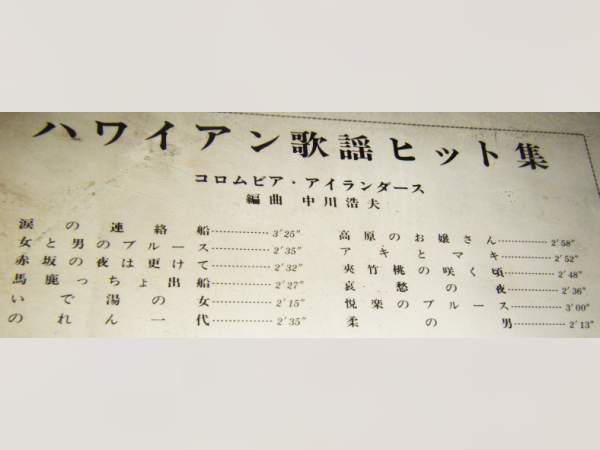 ハワイアン歌謡ヒット集
コロムビア・アイランダース
編曲 中川浩夫
涙の連絡船……………3′25″
女と男のブルース……………2′35″
赤坂の夜は更けて……………2′32″
馬鹿っちょ出船……………2′27″
いで湯の女……………2′15″
のれん一代……………2′35″
高原のお嬢さん……………2′58″
アキとマキ……………2′52″
夾竹桃の咲く頃……………2′48″
哀愁の夜……………2′36″
悦楽のブルース……………3′00″
柔の男……………2′13″